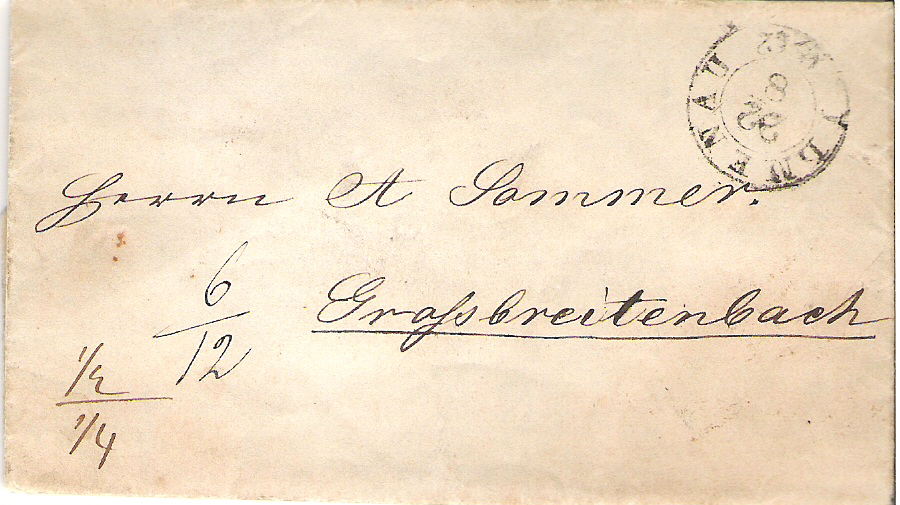 ILMENAU
22
8
Herrn A Sommer.
Grossbreitenbach
6
12
1/2
1/4